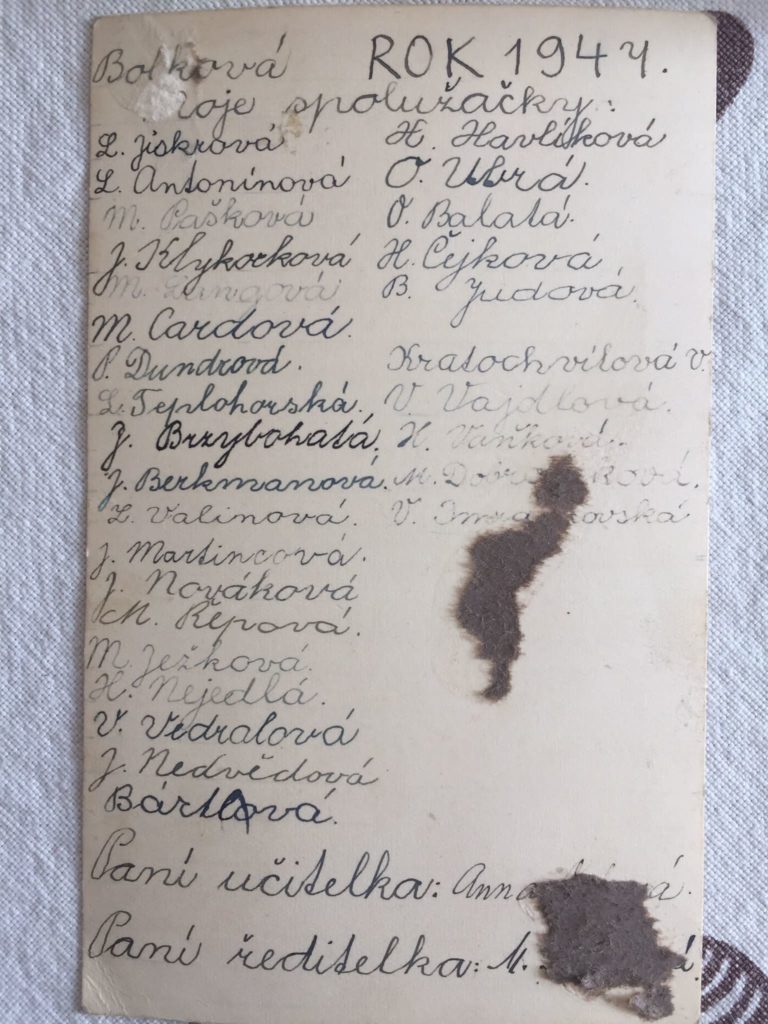 Bolková ROK 1944.
moje spolužačky:
L. Jiskrová
L. Antonínová
M. Pašková
J. Klykorková
M. Langová
M. Cardová.
P. Dundrová.
L. Teplohorská.
J. Brzybohatá.
J. Berkmanová.
L. Valinová.
J. Martincová.
J. Nováková
M. Řepová.
M. Ježková.
H. Nejedlá.
V. Vedralová
J. Nedvědová
Bártlová.
H. Havlíková
O. Ubrá.
O. Balatá.
H. Čejková
B. Judová.
Kratochvílová V.
V. Vajdlová.
H. Vaňková.
M.
V.
Paní učitelka: Anna
Paní ředitelka: M.